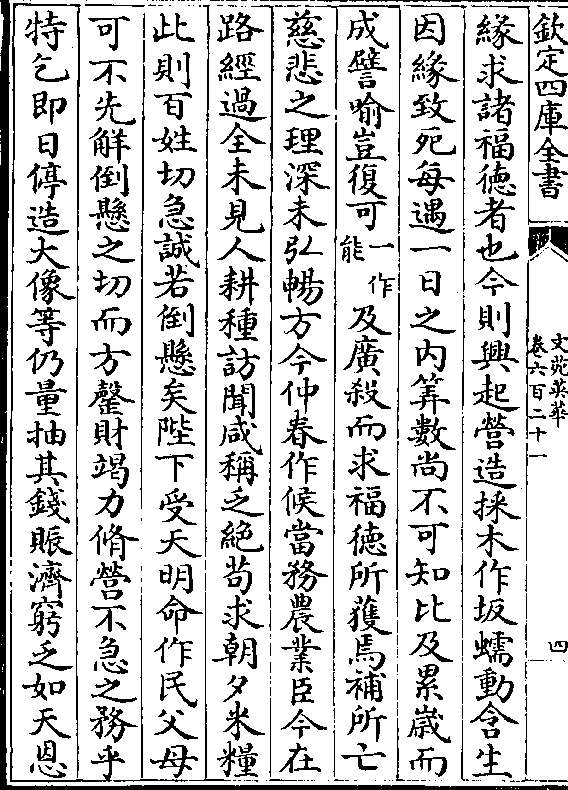 欽定四庫全書
文苑英華
卷六百二十一
四
緣求諸福徳者也今則興起營造採木作坂蠕動含生
因緣致死每遇一日之内筭數尚不可知比及累歳而
成譬喻豈復可一作能及廣殺而求福徳所獲焉補所亡
慈悲之理深未弘暢方今仲春作候當務農業臣今在
路經過全未見人耕種訪聞咸稱乏絶茍求朝夕米糧
此則百姓切急誠若倒懸矣陛下受天明命作民父母
可不先解倒懸之切而方罄財竭力脩營不急之務乎
特乞即日停造大像等仍量抽其錢賑濟窮乏如天恩